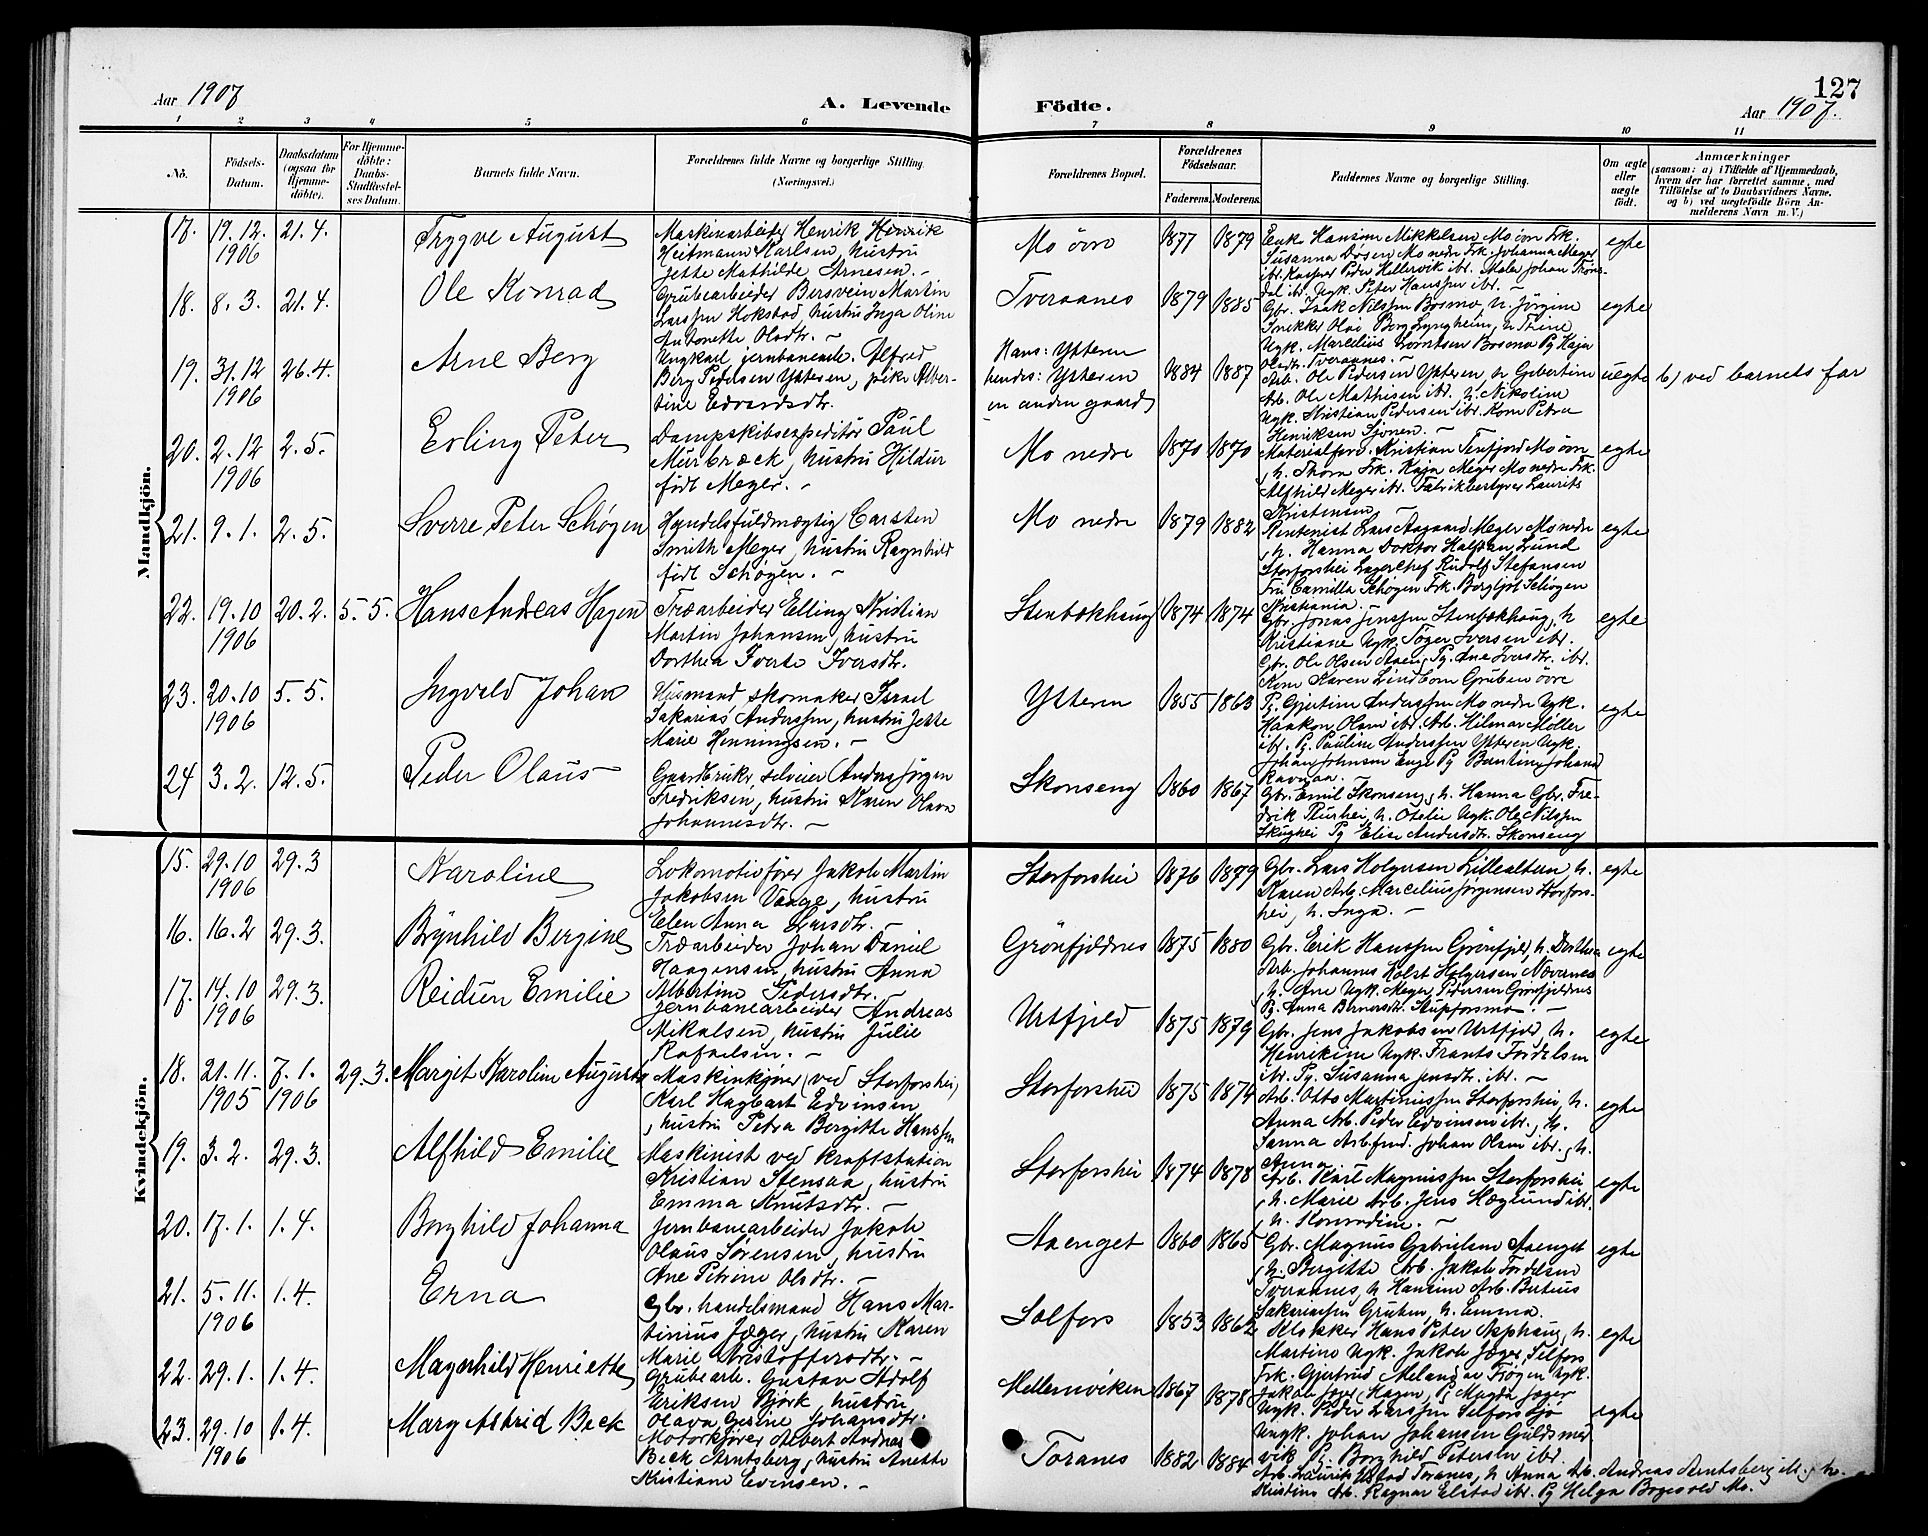 127
Aar 1907
A. Levende
Födte.
Aar 1907.
1 2 3 4 5 6 7 8 9 10 11
No.
Födsels-
Datum.
Daabsdatum
(ogsaa for
Hjemme-
döbte).
For Hjemme-
döbte:
Daabs-
Stadfæstel-
ses Datum.
Barnets fulde Navn.
Forældrenes fulde Navne og borgerlige Stilling.
(Næringsvei.)
Forældrenes Bopæl.
Forældrenes
Födselsaar.
Faderens.
Moderens.
Faddernes Navne og borgerlige Stilling.
Om ægte
eller
uægte
födt.
Anmærkninger
(saasom: a) i Tilfælde af Hjemmedaab,
hvem der har forrettet samme, med
Tilföielse af to Daabsvidners Navne.
og b) ved uægtefödte Börn An-
melderens Navn m. V.)
Mandkjön.
17. 19.12. 1906
21.4.
Trygve August
Maskinarbeider Henrik Henrik
Heitmann Karlsen, hustru
Jette Mathilde Arnesen. -
Mo övre
1877 1879
Enke Hansine Mikkelsen Mo övre Frk.
Susanna Døsen Mo nedre Frk. Johanna Meyer
ibr. Kasper Peder Hellervik ibr. Maler Johan Trøns-
dal ibr. Ugk. Peter Hanssen ibr. -
egte
18. 8.3. 21.4.
Ole Konrad
Grubearbeider Bersvein Martin
Larssen Hokstad, hustru Inga Oline
Antonette Olsdtr. -
Tveraanes
1879 1885
Gbr. Isak Nilssen Bosmo, h. Jörgine
Snekker Olai Berg Lyngheim, h. Trine
Ugk. Marcelius Börntsen Bosmo Pg Kaja
Olsdtr. Tveraanes. -
egte
19. 31.12 1906
26.4.
Arne Berg
Ungkarl jernbanearb. Alfred
Berg Pedersen Ytteren, pike Alber-
tine Edvardsdtr.
Hans: Ytteren
hendes: Ytteren
en anden gaard
1884 1887
Arb. Ole Pedersen Ytteren, h Gibertine
Arb. Ole Mathisen ibr. h. Nikoline
Ugk. Kristian Pedersen ibr. Kone Petra
Henriksen Sjonen. -
uegte
b) ved barnets far
20. 2.12 1906
2.5.
Erling Peter
Dampskibsexpeditör Paul
Murbræck, hustru Hildur
född Meyer. -
Mo nedre
1870 1870
Materialforv. Kristian Tenfjord Mo övre
, h. Thora Frk. Kaja Meyer Mo nedre Frk.
Alfhild Meyer ibr. Fabrikbestyrer Laurits
Kristensen -
egte
21. 9.1. 2.5.
Sverre Peter Schøgen
Handelsfuldmægtig Carsten
Smith Meyer, hustru Ragnhild
född Schøgen. -
Mo nedre
1879 1882
Rentenist Lars Aagaard Meyer Mo nedre
, h. Hanna Doktor Halfdan Lund
Storforshei Lagerchef Rudolf Stefansen
Fru Camilla Schøgen Frk. Borghild Schøgen
Kristiania. -
egte
22. 19.10 1906
20.2. 5.5.
Hans Andreas Hagen
Træarbeider Elling Kristian
Martin Johansen, hustru
Dorthea Iverte Iversdtr.
Stenbækhaug
1874 1874
Gbr. Jonas Jenssen Stenbækhaug, h
Kristiane Ugk. Töger Iversen ibr.
Gbr. Ole Olsen Aaen, Pg. Ane Iversdtr. ibr.
Kone Karen Lindbom Gruben övre
egte
23. 20.10 1906
5.5.
Ingvald Johan
Husmand, skomaker Israel
Sakarias Anderssen, hustru Jette
Marie Henningsen. -
Ytteren
1855 1863
Pg. Gjertine Anderssen Mo nedre Ugk.
Haakon Olsen ibr. Arb. Hilmar Möller
ibr. Pg. Pauline Anderssen Ytteren Ugk.
Johan Johnsen Enge Pg Bentine Johans
Ravnaa. -
egte
24 3.2. 12.5.
Peder Olaus
Gaardbruker selveier Anders Jörgen
Fredriksen, hustru Karen Olava
Johannesdtr. -
Skonseng
1860 1867
Gbr. Emil Skonseng, h. Hanna Gbr. Fre-
drik Plurhei, h. Otelie Ugk. Ole Nilssen
Skughei Pg Elise Andersdtr. Skonseng
Kvindekjön.
15. 29.10 1906
29.3
Karoline
Lokomotivfører Jakob Martin
Jakobsen Vaage, hustru
Elen Anna Larsdtr. -
Storforshei
1876 1879
Gbr. Lars Holgersen Lillealteren h.
Karen Arb. Marcelius Jørgensen Storfors-
hei, h. Inga. -
egte
16. 16.2 29.3.
Brynhild Bergine
Træarbeider Johan Daniel
Haagensen, hustru Anna
Albertine Pedersdtr. -
Grönfjeldnes
1875 1880
Gbr. Erik Hanssen Grönfjeld, h. Dorthea
Arb. Johannes Holst Holgersen Nævernes
, h. Ane Ugk. Meyer Pedersen Grönfjeldnes
Pg. Anna Bernersdtr. Stupforsmo. -
egte
17. 14.10 1906
29.3.
Reidun Emilie
Jernbanearbeider Andreas
Mikalsen, hustru Julie
Rafaelsen. -
Urtfjeld
1875 1879
Gbr. Jens Jakobsen Urtfjeld, h.
Henrikine Ugk. Frants Fordelsen
ibr. Pg. Susanna Jensdtr. ibr. -
egte
18. 21.11. 1905
7.1. 1906
29.3.
Margit Karoline Augusta
Maskinkjører (ved Storforshei)
Karl Hagbart Edvinsen
, hustru Petra Bergitte Hanssen
Storforshei
1875 1874
Arb. Otto Martinussen Storforshei, h.
Anna Arb. Peder Edvinsen ibr., h.
Janna Arb.fmd. Johan Olsen ibr., h.
Anna
egte
19. 3.2. 29.3.
Alfhild Emilie
Maskinist ved kraftstation
Kristian Stensaa, hustru
Emma Knutsdtr. -
Storforshei
1874 1878
Arb. Karl Magnussen Storforshei
, h. Marie Arb. Jens Hæglund ibr.
h. Konradine. -
egte
20. 17.1. 1.4.
Borghild Johanna
Jernbanearbeider Jakob
Olaus Sørensen, hustru
Ane Petrine Olsdtr. -
Aaenget
1860 1865
Gbr. Magnus Gabrielsen Aaenget
, h. Bergitte Arb. Jakob Fordelsen
Tveraanes, h Hansine Arb. Bertius
Sakariassen Gruben, h. Emma.
egte
21. 5.11. 1906
1.4.
Erna
Gbr. handelsmand Hans Mar-
tinius Jæger, hustru Karen
Marie Kristoffersdtr. -
Selfors
1853 1862
Klokker Hans Peter Asphaug, h.
Martine Ugk. Jakob Jæger, Selfors
Frk. Gjertrud Melandar Trögen Ugk.
Jakob Jæger, Hagen, Pg Magda Jæger
egte
22. 29.1. 1.4.
Magnhild Henriette
Grubearb. Gustav Adolf
Eriksen Björk, hustru
Olava Gurine Johansdtr.
Mellemviken
1867 1878
Ugk. Peder Larssen Selforssjø
Ungk. Johan Johansen Guldsmed-
vik Pg. Borghild Petersen ibr.
egte
23. 29.10 1906
1.4.
Mary Astrid Beck
Motorkjører Albert Andreas
Beck Arntsberg, hustru Anette
Kristiane Evensen. -
Toranes
1882 1884
Arb. Laurik Elstad Toranes, h Anna Arb. Andreas Arntsberg Mo, h.
Kristine Arb. Ragnar Elstad ibr. Pg Helga Bogesvold Mo.